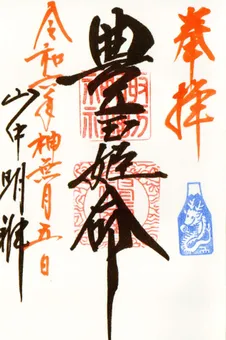 奉拝
豊玉姫命
令和二年神無月五日
山中明神